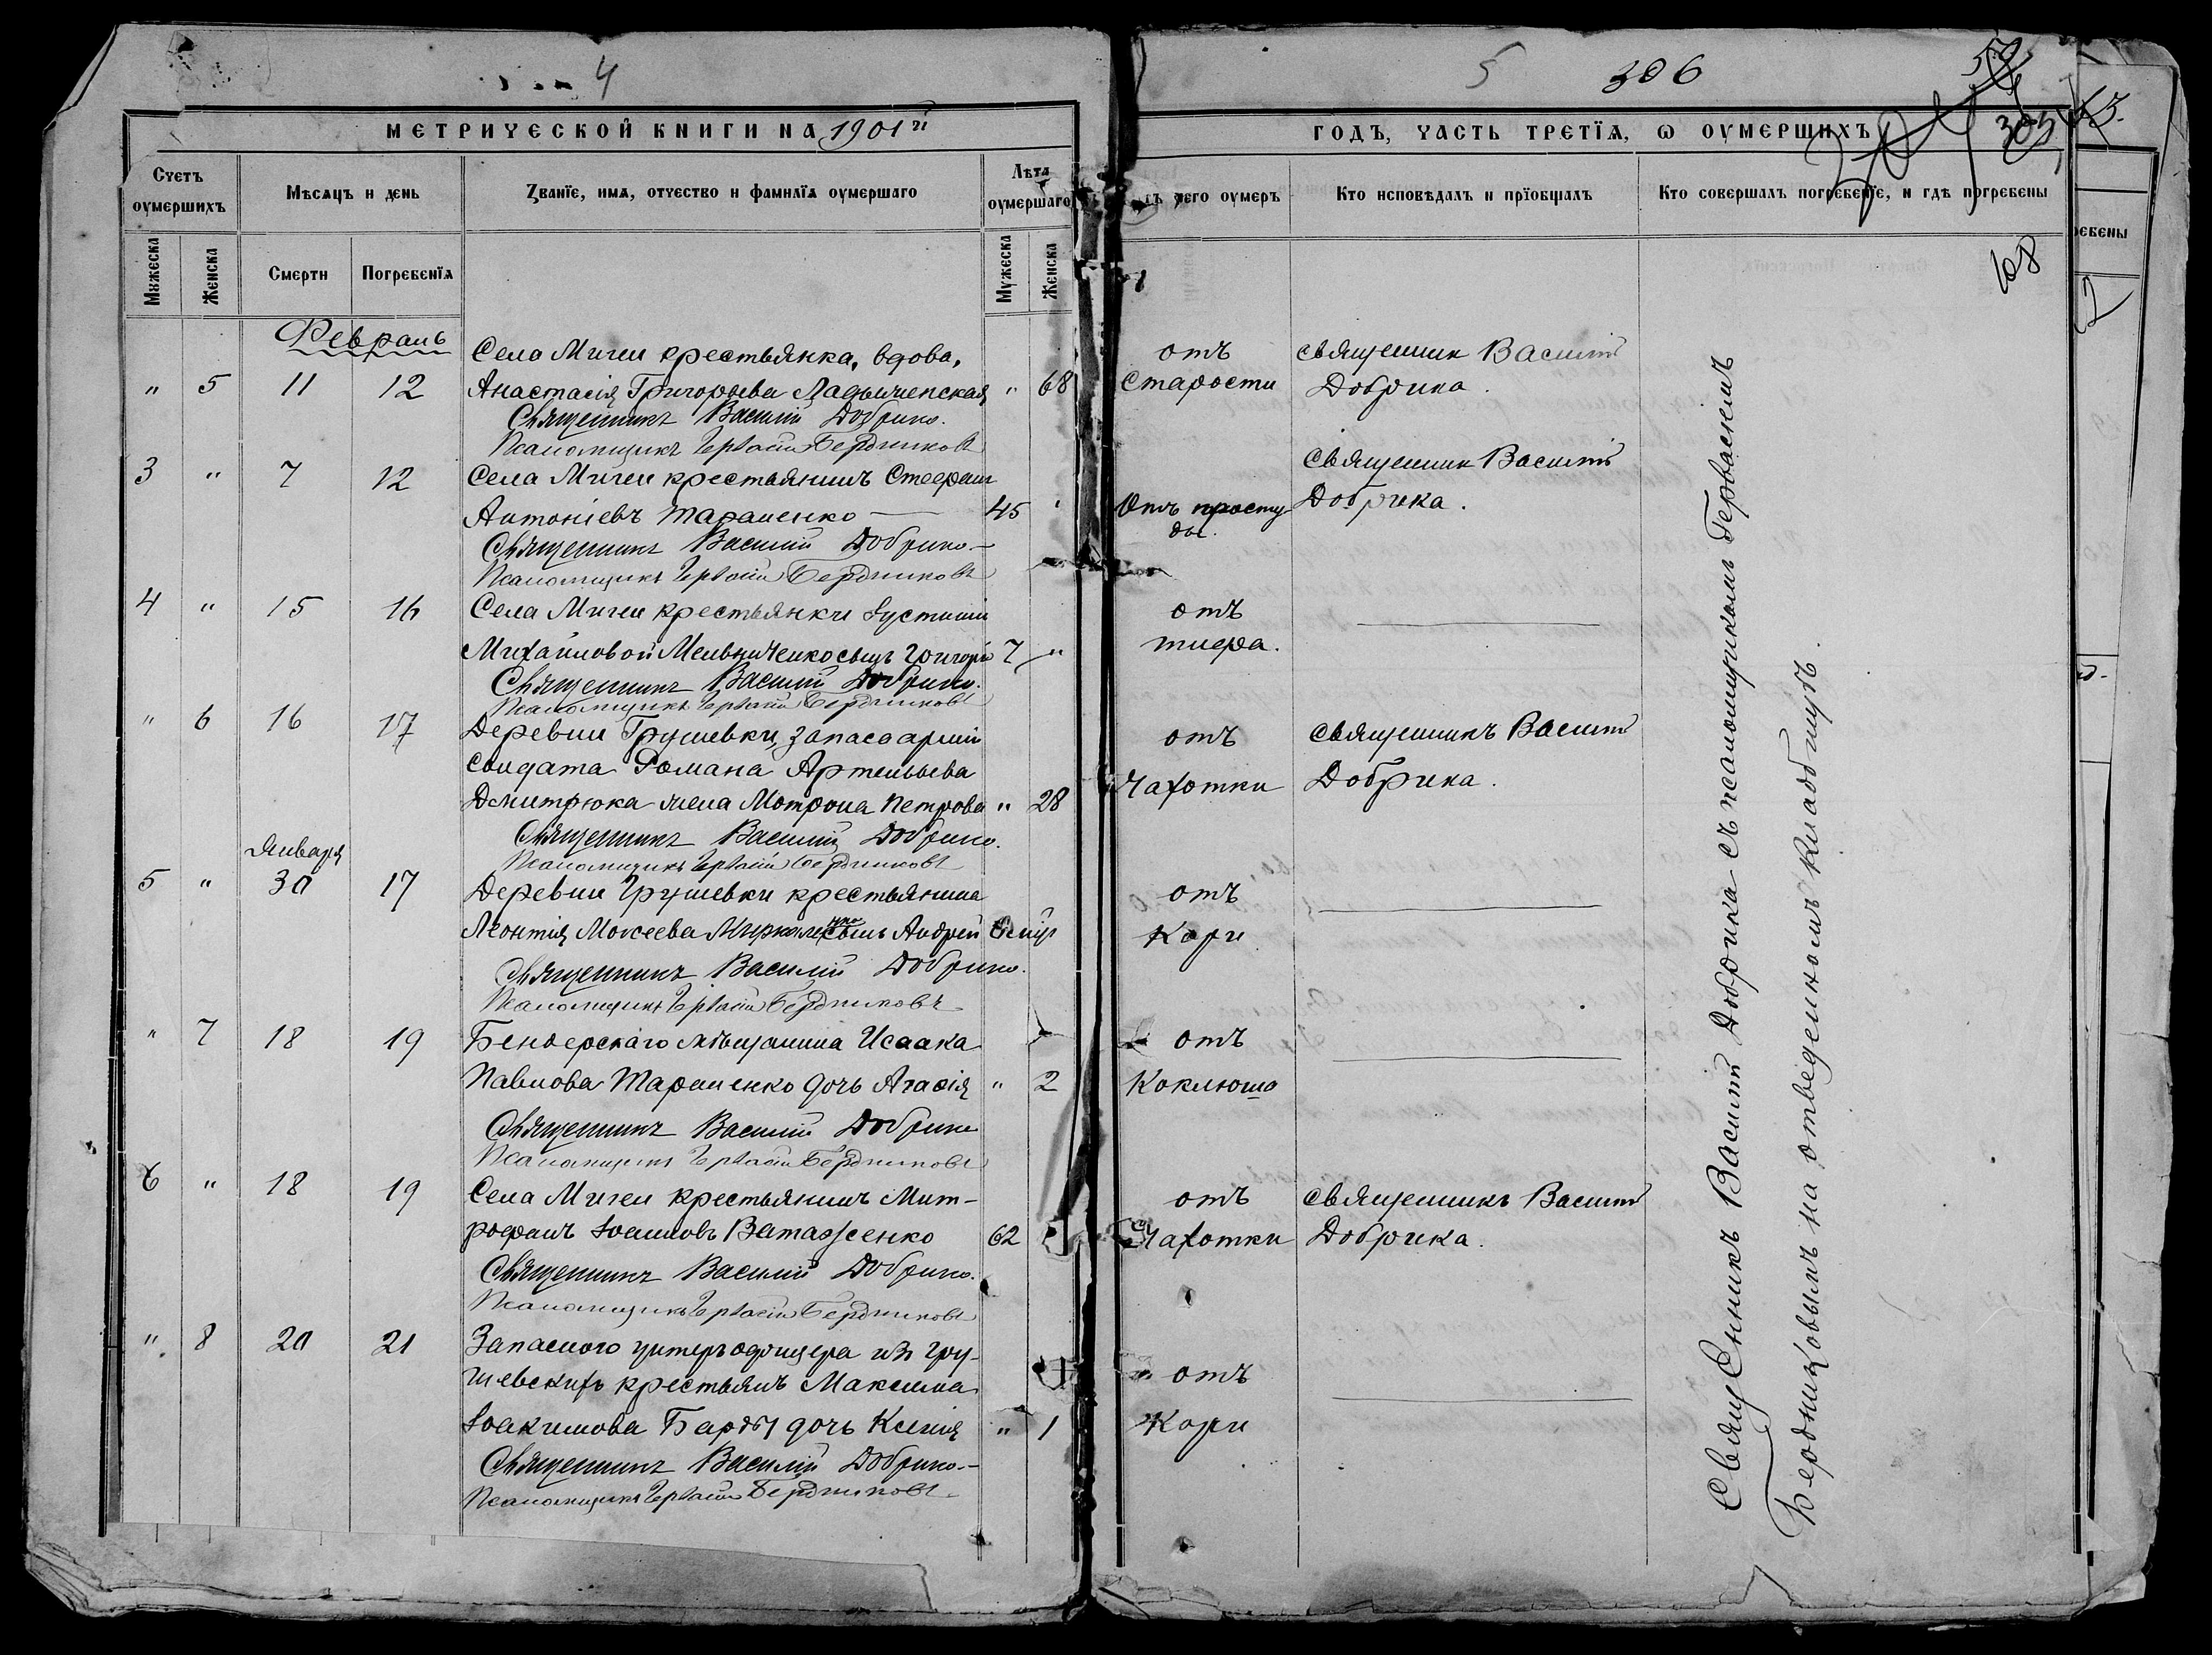 4
МЕТРИЧЕСКОЙ КНИГИ НА 1901й
Счетъ оумершихъ
Мѣсяцъ и день
Званїе, имя, отчество и фамилїя оумершаго
Лѣта оумершаго
Мужеска
Женска
Смерти
Погребенїя
Мужеска
Женска
Февраль
Села Мигеи крестьянка, вдова,
" 5 11 12 Анастасія Григорьева " 68
Священникъ Василій Добрика.
Псаломщикъ Гервасій Бердниковъ
3 " 7 12 Села Мигеи крестьянинъ Стефанъ
Антоніевъ Тараненко — 45 "
Священникъ Василій Добрика.
Псаломщикъ Гервасій Бердниковъ
4 " 15 16 Села Мигеи крестьянки Іустиніи
Михайловой Мельниченко сынъ Григорій 7 "
Священникъ Василій Добрика.
Псаломщикъ Гервасій Бердниковъ
" 6 16 17 Деревни Грушевки, запаса арміи
солдата Романа Артемьева
Дмитрюка жена Мотрона Петрова " 28
Священникъ Василій Добрика.
Псаломщикъ Гервасій Бердниковъ
Января
5 " 30 17 Деревни Грушевки крестьянина
Леонтія Моисеева сынъ Андрей
Священникъ Василій Добрика.
Псаломщикъ Гервасій Бердниковъ
" 7 18 19 Бендерскаго мѣщанина Исаака
Павлова Тараненко дочь Агафія " 2
Священникъ Василій Добрика
Псаломщикъ Гервасій Бердниковъ
6 " 18 19 Села Мигеи крестьянинъ Мит-
рофанъ Іоанновъ Ватаженко 62
Священникъ Василій Добрика.
Псаломщикъ Гервасій Бердниковъ
" 8 20 21 Запаснаго унтеръ офицера изъ Гру-
шевскихъ крестьянъ Максима
Іоакимова Барды дочь Ксенія " 1
Священникъ Василій Добрика.
Псаломщикъ Гервасій Бердниковъ
5 306
305
ГОДЪ, ЧАСТЬ ТРЕТЇЯ, Ѡ ОУМЕРШИХЪ
чего оумеръ
Кто исповѣдалъ и прїобщалъ
Кто совершалъ погребенїе, и гдѣ погребены
68
отъ
Старости
Священникъ Василій
Добрика.
Отъ просту
ды.
Священникъ Василій
Добрика.
отъ
тифа.
отъ
Чахотки
Священникъ Василій
Добрика.
отъ
Кори
отъ
Коклюша
отъ
Чахотки
Священникъ Василій
Добрика.
отъ
Кори
Священникъ Василій Добрика съ псаломщикомъ Гервасіемъ
Бердниковымъ на отведенномъ кладбищѣ.
ребены